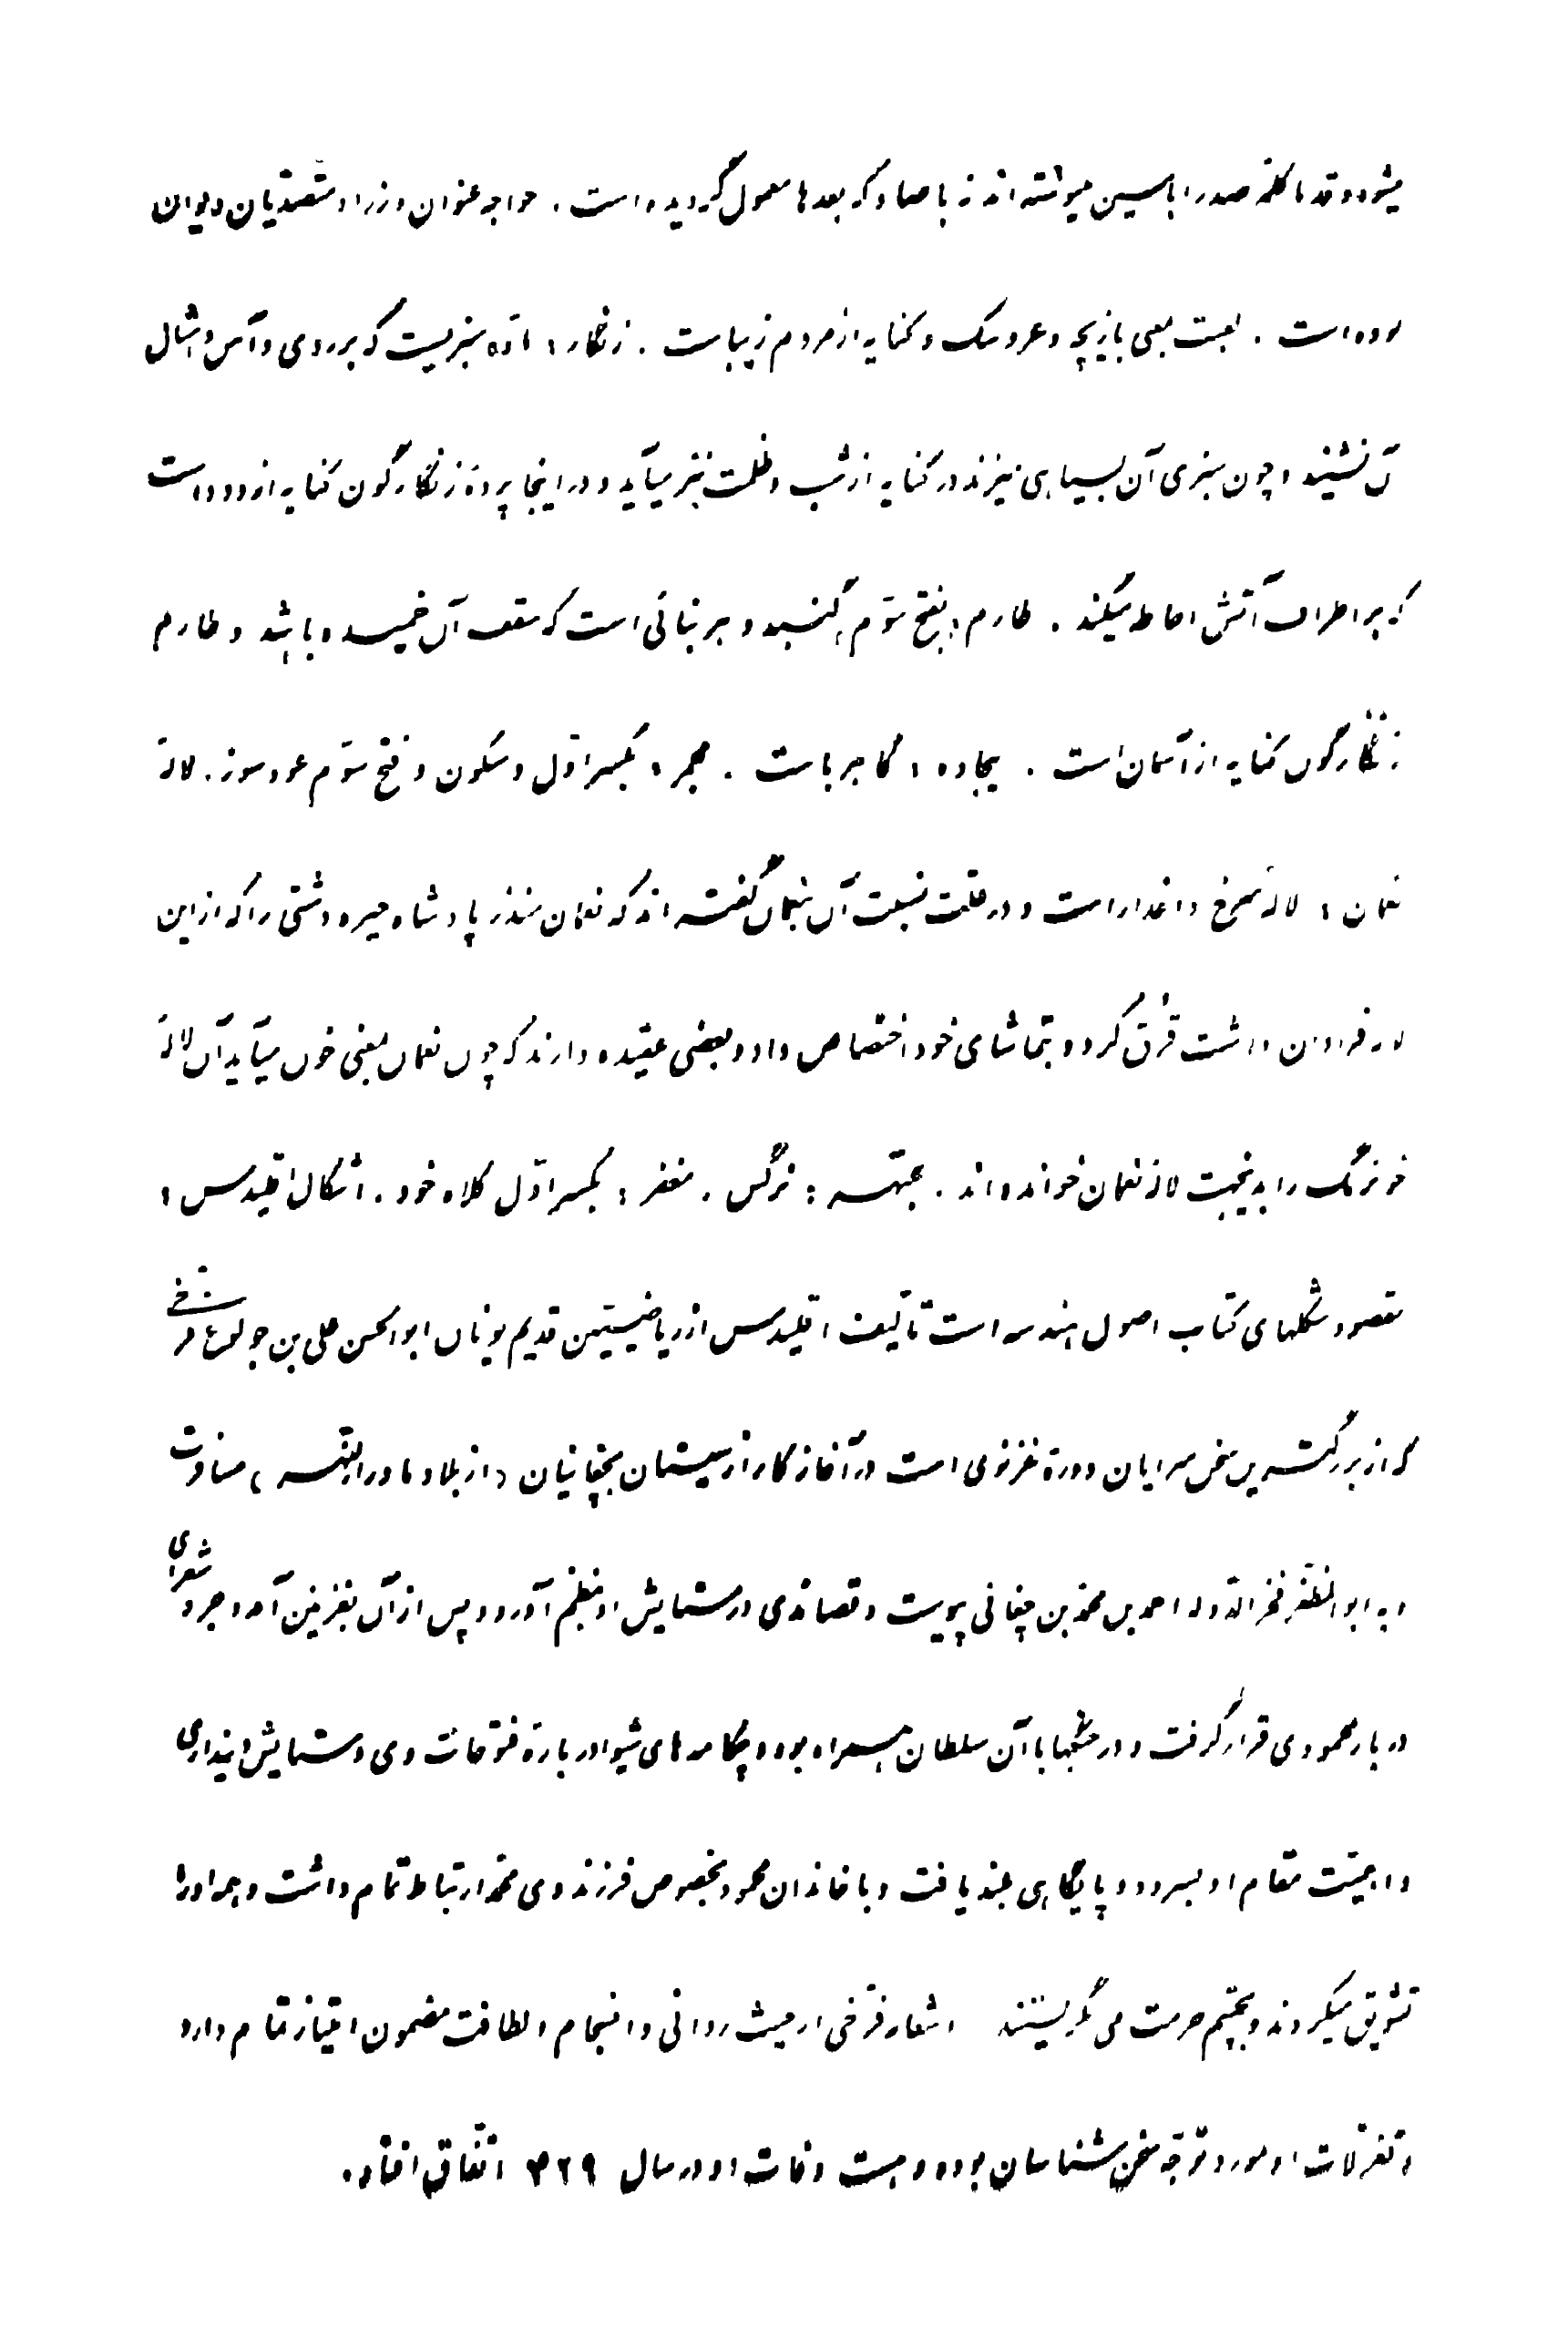 میشود و قدما کلمه صدرا با سین مینوشته‌اند نه با صاد که بعدها معمول گردیده است . خواجه عنوان وزراء و متصدیان دیوان
بوده است . لعبت بمعنی بازیچه و عروسک و کنایه از مردم زیباست . زنگار : مادّه سبزیست که بر روی و آهن و امثال
آن نشیند و چون سبزی آن بسیاهی نیز زند در کنایه از شب و ظلمت نیز میآید و در اینجا پردهٔ زنگارگون کنایه از دود است
که بر اطراف آتش احاطه میکند . طارم : بفتح سوّم ، گنبد و هر بنائی است که سقف آن خمیده باشد و طارم
زنگارگون کنایه از آسمان است . بیجاده : کاهرباست . مجمر : بکسر اوّل و سکون و فتح سوّم عودسوز . لالهٔ
نعمان : لالهٔ سرخ داغدار است و در علّت نسبت آن بنعمان گفته‌اند که نعمان منذر پادشاه حیره دشتی را که از این
لاله فراوان داشت قرق کرد و بتماشای خود اختصاص داد و بعضی عقیده دارند که چون نعمان بمعنی خون میآید آن لالهٔ
خونرنگ را بدینجهت لالهٔ نعمان خوانده‌اند . عبهر : نرگس . مغفر : بکسر اوّل کلاه خود . اشکال اقلیدس :
مقصود شکلهای کتاب اصول هندسه است تألیف اقلیدس از ریاضیّین قدیم یونان ابوالحسن علی بن جولوغ فرّخی
که از بزرگترین سخن سرایان دورهٔ غزنوی است در آغاز کار از سیستان بچغانیان ( از بلاد ماوراءالنّهر ) مسافرت
و به ابوالمظفّر فخرالدّوله احمد بن محمّد بن چغانی پیوست و قصائدی در ستایش او بنظم آورد و پس از آن بغزنین آمد و جزو شعرای
دربار محمودی قرار گرفت و در جنگها با آن سلطان همراه بود و چکامه‌های شیوا در بارهٔ فتوحات وی و ستایش دینداری
و اهمیّت مقام او بسرود و پایگاهی بلند یافت و با خاندان محمود بخصوص فرزند وی محمّد ارتباط تمام داشت و همه او را
تشویق میکردند و بچشم حرمت می نگریستند اشعار فرّخی از حیث روانی و انسجام و لطافت مضمون امتیاز تمام دارد
و تغزّلات او مورد توجّه سخن شناسان بوده و هست وفات او در سال ۴۲۹ اتّفاق افتاد .